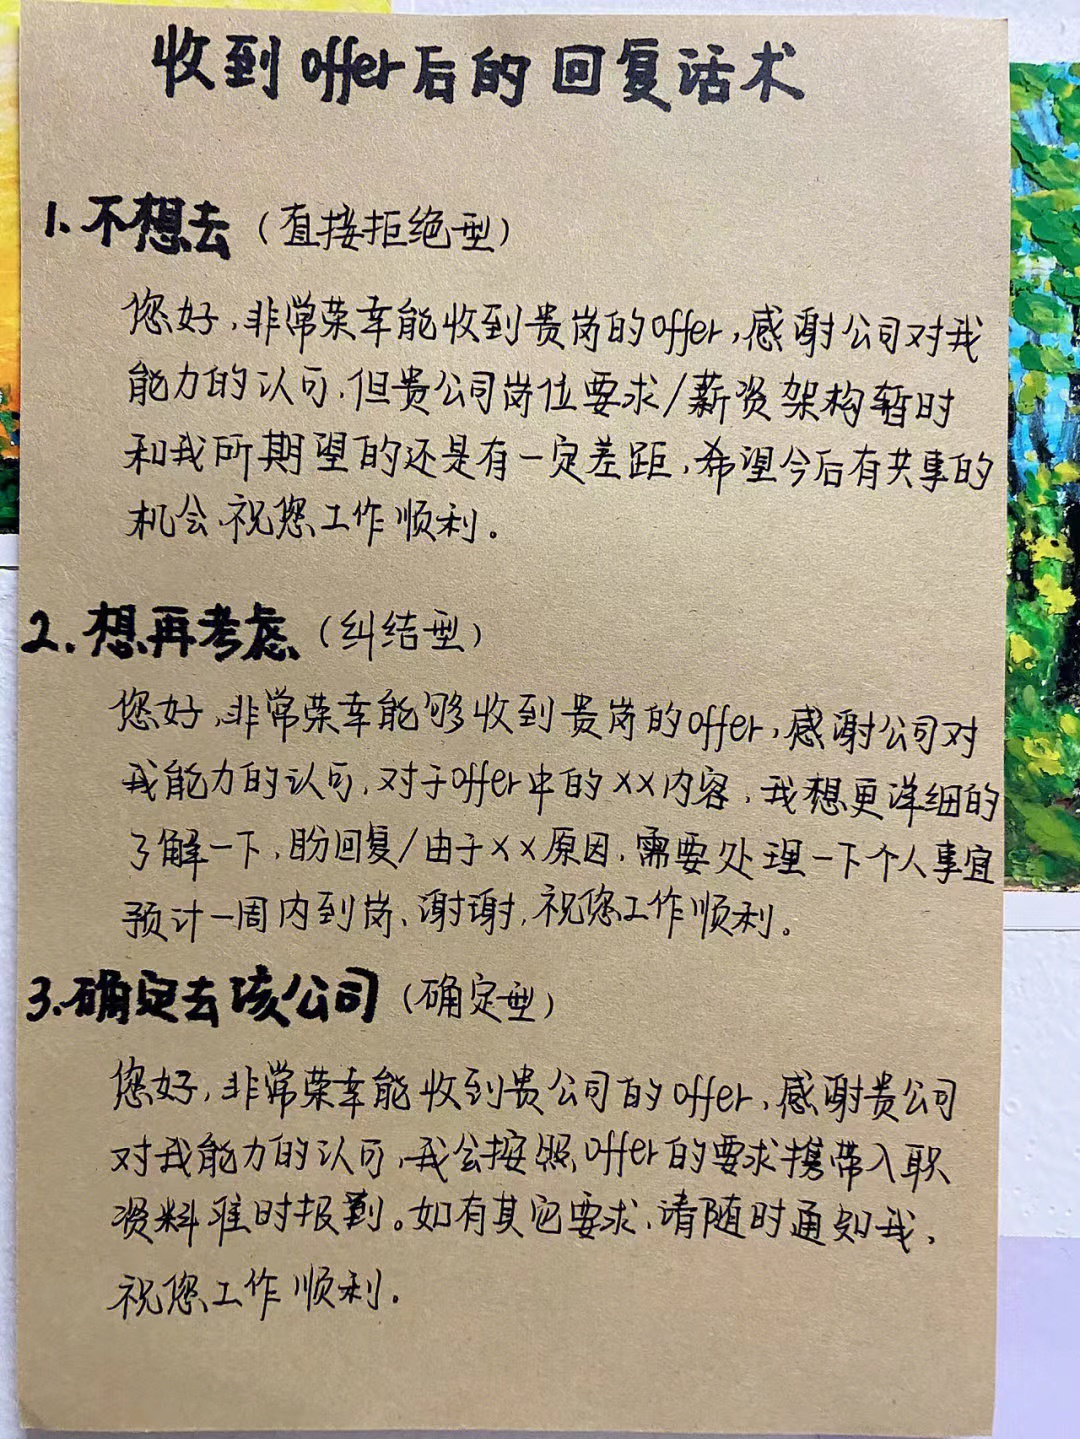 收到offer后的回复话术
1.不想去（直接拒绝型）
您好,非常荣幸能收到贵岗的offer,感谢公司对我
能力的认可,但贵公司岗位要求/薪资架构暂时
和我所期望的还是有一定差距,希望今后有共事的
机会,祝您工作顺利。
2.想再考虑（纠结型）
您好,非常荣幸能够收到贵岗的offer,感谢公司对
我能力的认可,对于offer中的XX内容,我想更详细的
了解一下,盼回复/由于XX原因,需要处理一下个人事宜
预计一周内到岗、谢谢,祝您工作顺利。
3.确定去该公司（确定型）
您好,非常荣幸能收到贵公司的offer,感谢贵公司
对我能力的认可,我会按照offer的要求携带入职
资料准时报到。如有其它要求,请随时通知我,
祝您工作顺利.